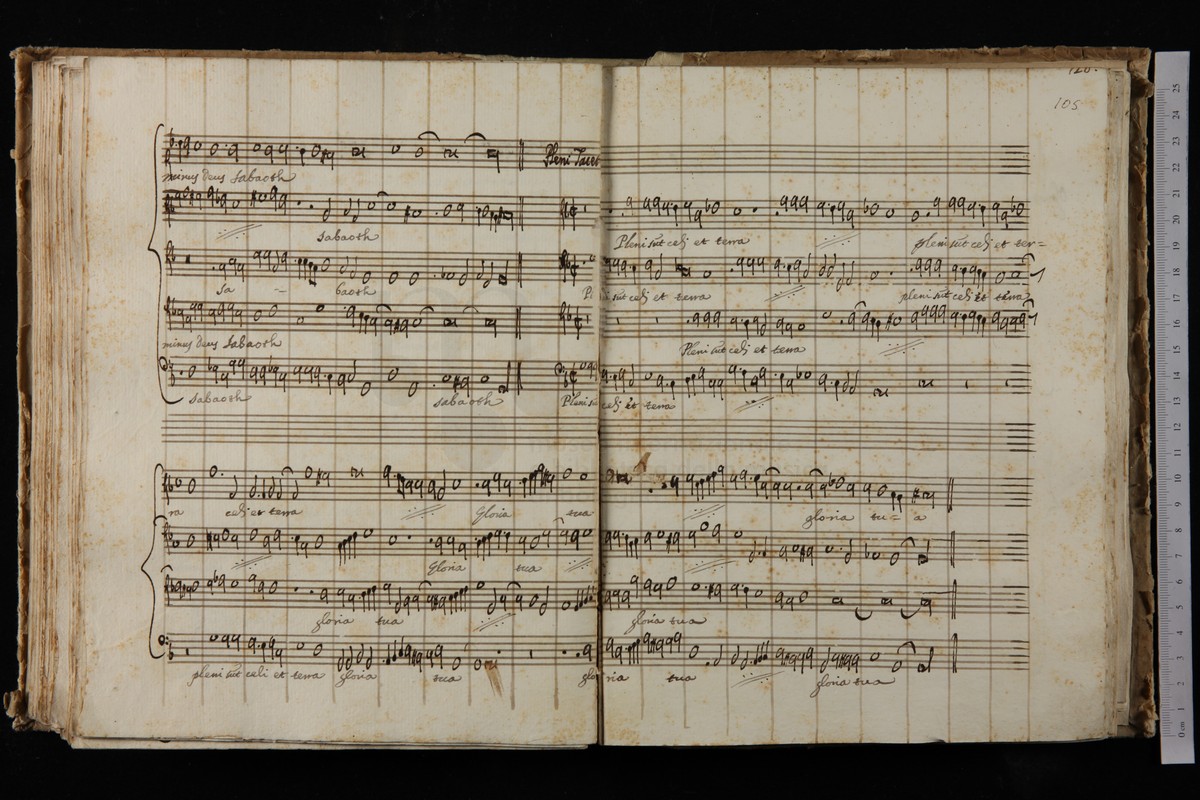 105
minus deus Sabaoth
Pleni Tacet
Sabaoth
Pleni sūt celi et terra
pleni sūt celi et ter=
Sa - baoth
Pleni sūt celi et terra
pleni sūt celi et terra
minus deus Sabaoth
Pleni sūt celi et terra
Sabaoth
sabaoth
Pleni sūt celi et terra
ra celi et terra
Gloria tua
gloria tu = a
Gloria tua
gloria tua
gloria tua
pleni sūt celi et terra gloria tua
gloria tua
gloria tua
0 cm 1 2 3 4 5 6 7 8 9 10 11 12 13 14 15 16 17 18 19 20 21 22 23 24 25